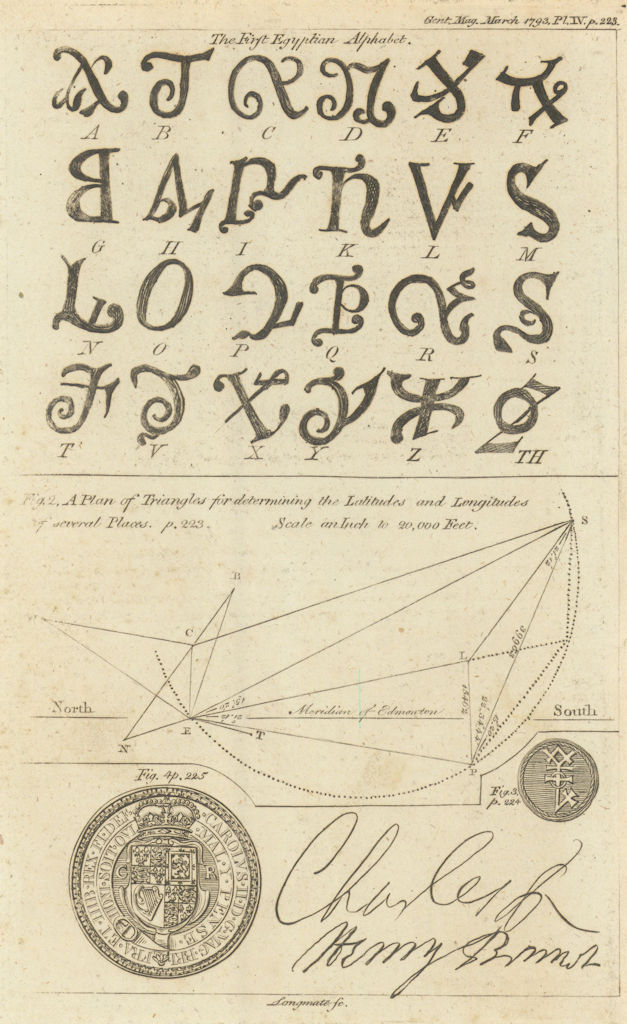 Gent. Mag. March 1793. Pl. IV. p. 223.
The First Egyptian Alphabet.
A B C D E F
G H I K L M
N O P Q R S
T V X Y Z TH
Fig. 2. A Plan of Triangles for determining the Latitudes and Longitudes
of several Places. p. 223. Scale an Inch to 20,000 Feet.
S
B
C
L
39963
15402
North
Meridian of Edmonton
South
E
T
N
P
Fig. 4 p. 225
Fig. 3.
p. 224
CAROLVS I D G MAG BRI FRA ET HIB REX FI DEF
HONI SOIT QVI MAL Y PENSE
C R
Charles R
Henry
Longmate sc.